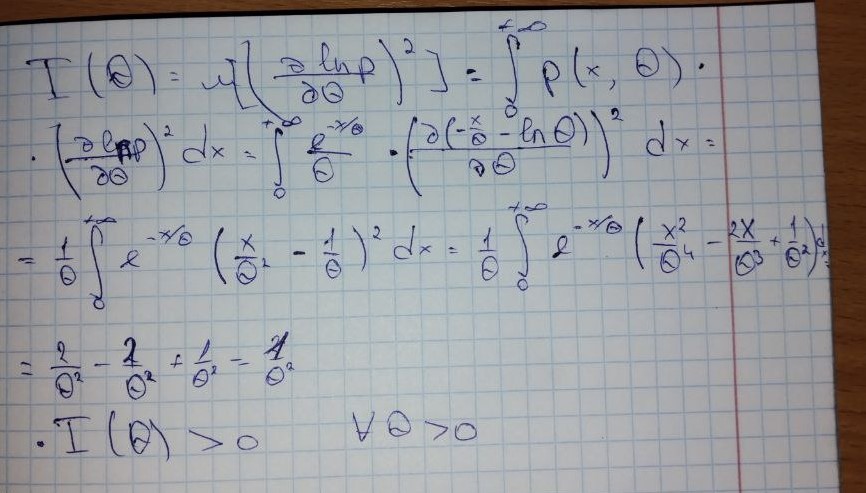 I(θ) = M[(∂ ln p / ∂θ)²] = ∫₀^{+∞} p(x, θ) ·
· (∂ ln p / ∂θ)² dx = ∫₀^{+∞} e^{-x/θ}/θ · (∂(-x/θ - ln θ) / ∂θ)² dx =
= 1/θ ∫₀^{+∞} e^{-x/θ} (x/θ² - 1/θ)² dx = 1/θ ∫₀^{+∞} e^{-x/θ} (x²/θ⁴ - 2x/θ³ + 1/θ²) dx =
= 2/θ² - 2/θ² + 1/θ² = 1/θ²
· I(θ) > 0 ∀ θ > 0